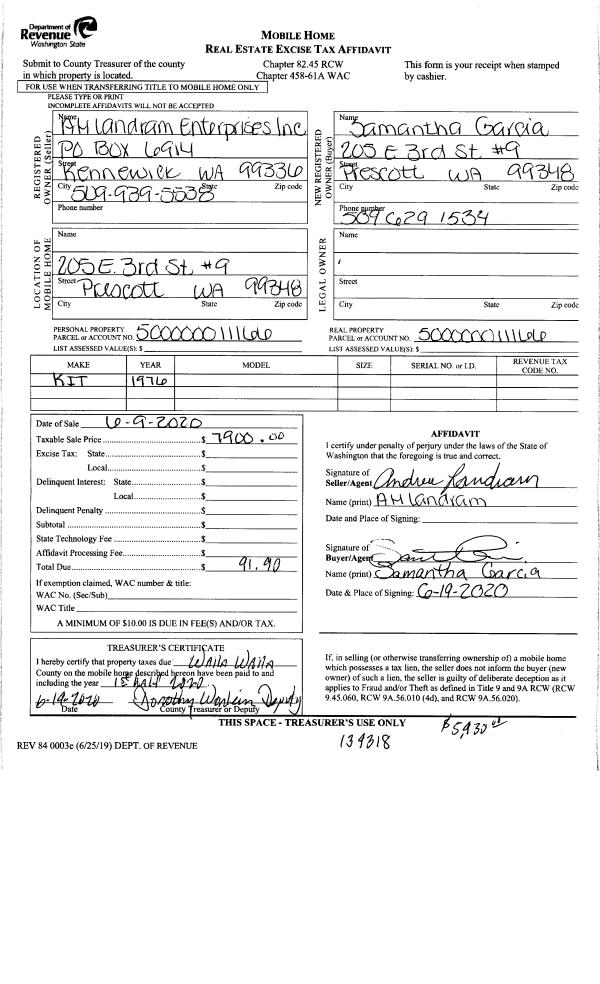 Department of
Revenue
Washington State
MOBILE HOME
REAL ESTATE EXCISE TAX AFFIDAVIT
Submit to County Treasurer of the county
in which property is located.
Chapter 82.45 RCW
Chapter 458-61A WAC
This form is your receipt when stamped
by cashier.
FOR USE WHEN TRANSFERRING TITLE TO MOBILE HOME ONLY
PLEASE TYPE OR PRINT
INCOMPLETE AFFIDAVITS WILL NOT BE ACCEPTED
REGISTERED
OWNER (Seller)
Name
AM Landram Enterprises Inc
PO BOX 6914
Street
Kennewick WA 99336
City State Zip code
509-939-5538
Phone number
NEW REGISTERED
OWNER (Buyer)
Name
Samantha Garcia
205 E 3rd St #9
Street
Prescott WA 99348
City State Zip code
Phone number
509 629 1534
LOCATION OF
MOBILE HOME
Name
205 E. 3rd St. #9
Street
Prescott WA 99348
City State Zip code
LEGAL OWNER
Name
Street
City State Zip code
PERSONAL PROPERTY
PARCEL or ACCOUNT NO. 500000011166
LIST ASSESSED VALUE(S): $
REAL PROPERTY
PARCEL or ACCOUNT NO. 500000011166
LIST ASSESSED VALUE(S): $
MAKE YEAR MODEL SIZE SERIAL NO. or I.D. REVENUE TAX CODE NO.
KIT 1976
Date of Sale 6-9-2020
Taxable Sale Price $ 7900.00
Excise Tax: State $
Local $
Delinquent Interest: State $
Local $
Delinquent Penalty $
Subtotal $
State Technology Fee $
Affidavit Processing Fee $
Total Due $ 91.90
If exemption claimed, WAC number & title:
WAC No. (Sec/Sub)
WAC Title
A MINIMUM OF $10.00 IS DUE IN FEE(S) AND/OR TAX.
AFFIDAVIT
I certify under penalty of perjury under the laws of the State of
Washington that the foregoing is true and correct.
Signature of
Seller/Agent Andrew Landram
Name (print) AM Landram
Date and Place of Signing:
Signature of
Buyer/Agent
Name (print) Samantha Garcia
Date & Place of Signing: 6-19-2020
TREASURER'S CERTIFICATE
I hereby certify that property taxes due Walla Walla
County on the mobile home described hereon have been paid to and
including the year 1st half 2020
6-19-2020 Dorothy Deputy
Date County Treasurer or Deputy
If, in selling (or otherwise transferring ownership of) a mobile home
which possesses a tax lien, the seller does not inform the buyer (new
owner) of such a lien, the seller is guilty of deliberate deception as it
applies to Fraud and/or Theft as defined in Title 9 and 9A RCW (RCW
9.45.060, RCW 9A.56.010 (4d), and RCW 9A.56.020).
THIS SPACE - TREASURER'S USE ONLY
$5,930.00
139318
REV 84 0003e (6/25/19) DEPT. OF REVENUE